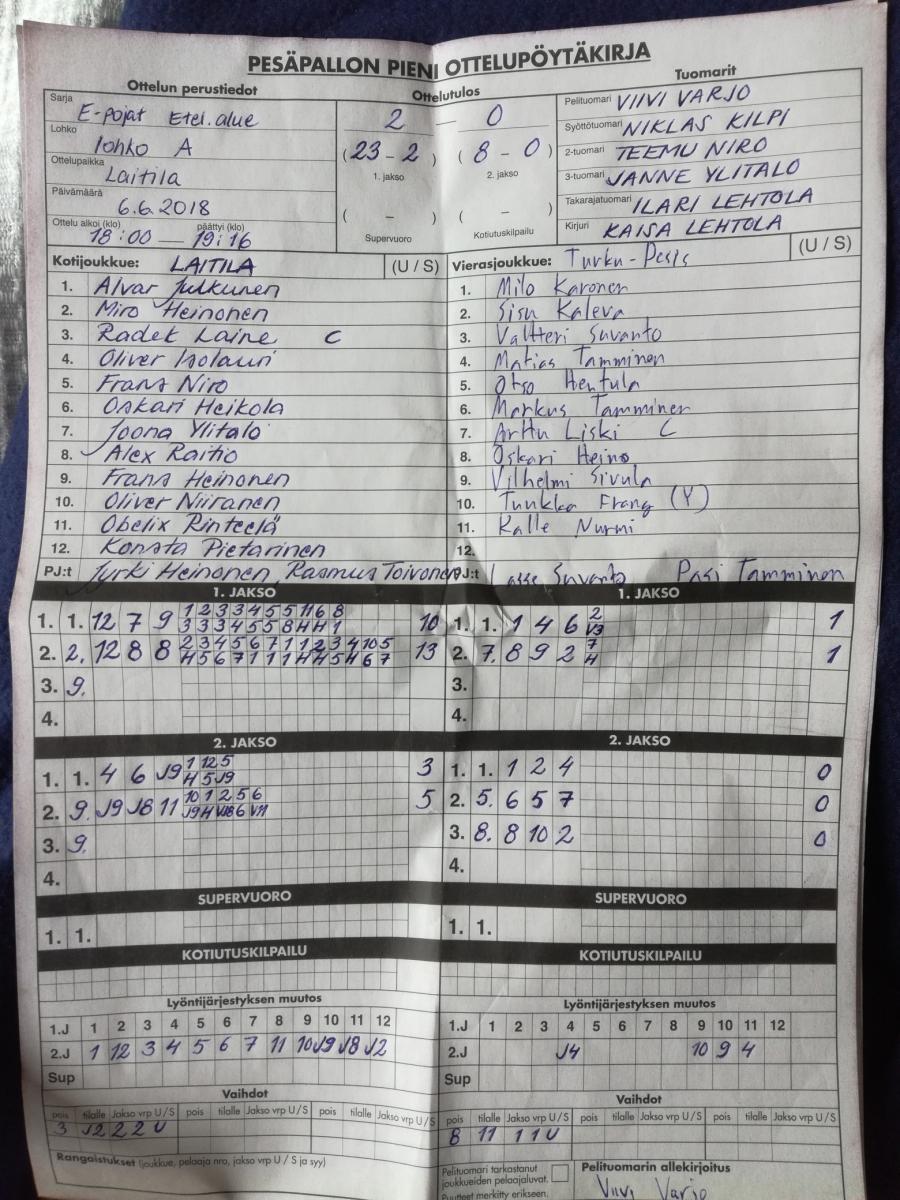 PESÄPALLON PIENI OTTELUPÖYTÄKIRJA
Ottelun perustiedot
Sarja E-pojat Etel. alue
Lohko lohko A
Ottelupaikka Laitila
Päivämäärä 6.6.2018
Ottelu alkoi (klo) päättyi (klo)
18:00 — 19:16
Ottelutulos
2 — 0
(23-2) (8-0)
1. jakso 2. jakso
( – ) ( – )
Supervuoro Kotiutuskilpailu
Tuomarit
Pelituomari VIIVI VARJO
Syöttötuomari NIKLAS KILPI
2-tuomari TEEMU NIRO
3-tuomari JANNE YLITALO
Takarajatuomari ILARI LEHTOLA
Kirjuri KAISA LEHTOLA
Kotijoukkue: LAITILA (U / S)
1. Alvar Julkunen
2. Miro Heinonen
3. Radek Laine C
4. Oliver Isolauri
5. Frans Niro
6. Oskari Heikola
7. Joona Ylitalo
8. Alex Raitio
9. Frans Heinonen
10. Oliver Niiranen
11. Obelix Rinteelä
12. Konsta Pietarinen
PJ:t Jyrki Heinonen, Rasmus Toivonen
Vierasjoukkue: Turku-Pesis (U / S)
1. Milo Karonen
2. Sisu Kaleva
3. Valtteri Suvanto
4. Matias Tamminen
5. Otso Hentula
6. Markus Tamminen
7. Arttu Liski C
8. Oskari Heino
9. Vilhelmi Sivula
10. Tuukka Frang (Y)
11. Kalle Nurmi
12.
PJ:t Lasse Suvanto Pasi Tamminen
1. JAKSO
1. 1. 12 7 9 1 2 3 3 4 5 5 11 6 8 10
3 3 3 4 5 5 8 H H 1
2. 2. 12 8 8 2 3 4 5 6 7 1 1 2 3 4 10 5 13
H 5 6 7 1 1 1 H H 5 H 6 7
3. 9.
4.
1. JAKSO
1. 1. 1 4 6 2 1
V3
2. 7. 8 9 2 7 1
H
3.
4.
2. JAKSO
1. 1. 4 6 J9 1 12 5 3
H 5 J9
2. 9. J9 J8 11 10 1 2 5 6 5
J9 H VJ8 6 V11
3. 9.
4.
2. JAKSO
1. 1. 1 2 4 0
2. 5. 6 5 7 0
3. 8. 8 10 2 0
4.
SUPERVUORO
1. 1.
SUPERVUORO
1. 1.
KOTIUTUSKILPAILU
KOTIUTUSKILPAILU
Lyöntijärjestyksen muutos
1.J 1 2 3 4 5 6 7 8 9 10 11 12
2.J 1 12 3 4 5 6 7 11 10 J9 J8 J2
Sup
Lyöntijärjestyksen muutos
1.J 1 2 3 4 5 6 7 8 9 10 11 12
2.J J4 10 9 4
Sup
Vaihdot
pois tilalle Jakso vrp U / S pois tilalle Jakso vrp U / S pois tilalle Jakso vrp U / S
3 J2 2 2 U
Rangaistukset (joukkue, pelaaja nro, jakso vrp U / S ja syy)
Vaihdot
pois tilalle Jakso vrp U / S pois tilalle Jakso vrp U / S pois tilalle Jakso vrp U / S
8 11 1 1 U
Pelituomari tarkastanut
joukkueiden pelaajaluvat.
Puutteet merkitty erikseen.
Pelituomarin allekirjoitus
Viivi Varjo